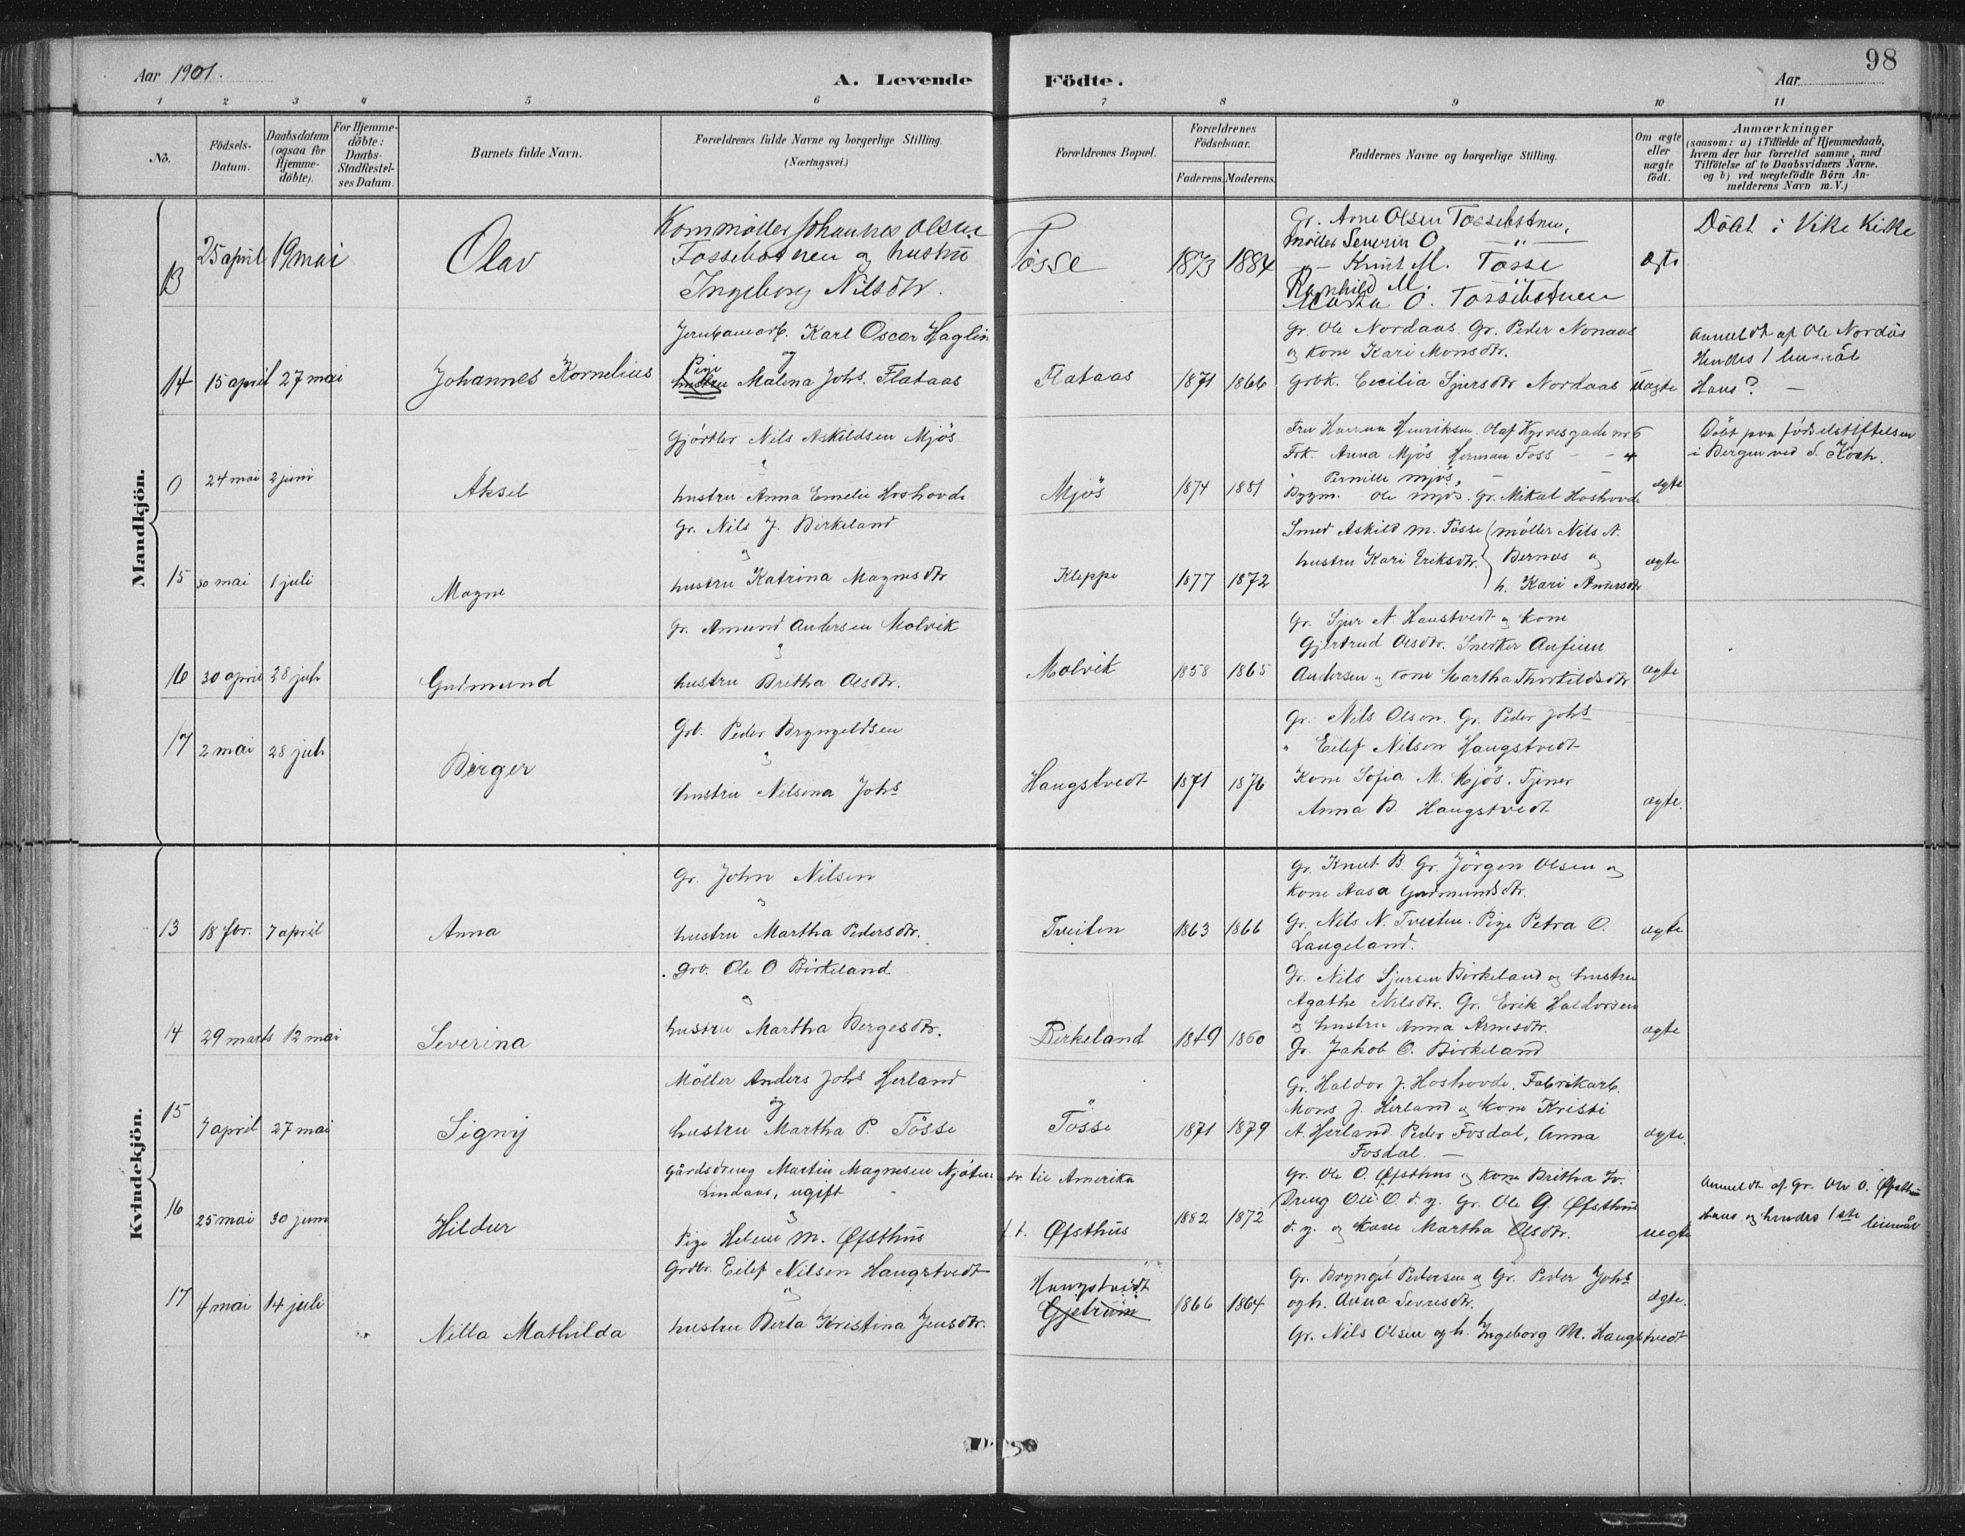 Aar 1901.
A. Levende Födte.
Aar
98
1 2 3 4 5 6 7 8 9 10 11
No.
Födsels-Datum.
Daabsdatum (ogsaa for Hjemme-döbte).
For Hjemme-döbte: Daabs-Stadfæstel-ses Datum.
Barnets fulde Navn.
Forældrenes fulde Navne og borgerlige Stilling.
(Næringsvei.)
Forældrenes Bopæl.
Forældrenes Födselsaar.
Faderens. Moderens.
Faddernes Navne og borgerlige Stilling.
Om ægte eller uægte födt.
Anmærkninger
(saasom: a) i Tilfælde af Hjemmedaab,
hvem der har forrettet samme, med
Tilföielse af to Daabsvidners Navne.
og b) ved uægtefödte Börn An-
melderens Navn m. V.)
Mandkjön.
13 25 april 19 mai Olav
Kornmöller Johannes Olsen
Fossebotnen og hustru
Ingeborg Nilsdtr.
Tösse 1873 1884
Gr. Arne Olsen Tössebotnen,
Möller Severin O. — " —
Knut M. Tösse
Ragnhild M.
Marta O. Tössebotnen
ægte
Döbt i Vike Kirke
14 15 april 27 mai Johannes Kornelius
Jernbanearb. Karl Oscar Haglin
og
Pige hustru Malena Johs. Flataas
Flataas 1871 1866
Gr. Ole Nordaas. Gr. Peder Nonaas
og kone Kari Monsdtr.
Grbk. Cecilia Sjursdtr Nordaas
uægte
Anmeldt af Ole Nordås
Hendes 1 leiemål
Hans? —
0 24 mai 2 juni Aksel
Gjörtler Nils Askildsen Mjös
og
hustru Anna Emelie Hoshovde
Mjös 1874 1881
Fru Hanna Henriksen Olaf Kyrresgade nr 6
Frk. Anna Mjös Herman Foss — — 4
" Pernille Mjös,
Bygm. Ole Mjös. Gr. Mikal Hoshovde
ægte
Döbt paa födselstiftelsen
i Bergen ved S. Koch.
15 30 mai 1 juli Magne
Gr. Nils J. Birkeland
og
hustru Katrina Magnesdtr
Kleppe 1877 1872
Smed Askild M. Tösse
hustru Kari Eriksdtr.
möller Nils A.
Bernes og
h. Kari Andersdtr
ægte
16 30 april 28 juli Gudmund
Gr. Amund Andersen Molvik
og
hustru Bretha Olsdtr.
Molvik 1858 1865
Gr. Sjur A Haustvedt og kone
Gjertrud Olsdtr. Snerker Anfinn
Andersen og kone Martha Thorkildsdtr
ægte
17 2 mai 28 juli Birger
Grb. Peder Bryngeldsen
og
hustru Nilsina Johs
Haugstvedt 1871 1876
Gr. Nils Olsen. Gr. Peder Johs
" Eilef Nilsen Haugstvedt
Kone Sofia M. Mjös. Tjener
Anna B. Haugstvedt
ægte.
Kvindekjön.
13 18 fbr. 7 april Anna
Gr. John Nilsen
og
hustru Martha Pedersdtr.
Tveiten 1863 1866
Gr. Knut B Gr. Jörgen Olsen og
kone Aasa Gudmundsdtr.
Gr. Nils N. Tveiten. Pige Petra O.
Langeland.
ægte
14 29 marts 12 mai Severina
Grb. Ole O Birkeland
og
hustru Martha Bergesdtr.
Birkeland 1849 1860
Gr. Nils Sjursen Birkeland og hustru
Agathe Nilsdtr. Gr. Erik Haldorsen
og hustru Anna Arnesdtr.
Gr. Jakob O. Birkeland
ægte
15 7 april 27 mai Signy
Möller Anders Johs Herland
og
hustru Martha P. Tösse
Tösse 1871 1879
Gr. Haldor J. Hoshovde. Fabrikarb.
Mons J. Herland og kone Kristi
A. Herland Peder Fosdal, Anna
Fosdal. —
ægte.
16 25 mai 30 juni Hildur
Gårdsdreng Martin Magnesen Njåten
Lindaas, ugift
og
Pige Helene M. Øfsthus
udv. til Amerika
f. t. Øfsthus 1882 1872
Gr. Ole O. Øfsthus og kone Britha Iv.
Dreng Ole O. d. y. Gr. Ole G. Øfsthus
d. y. og kone Martha Olsdtr.
uegte
Anmeldt af Gr. Ole O. Øfsthus
Hans og hendes 1ste leiemål
17 4 mai 14 juli Nilla Mathilda
Grdbr. Eilef Nilsen Haugstvedt
og
hustru Berta Kristina Jensdtr.
Haugstvedt
Gjetrum 1866 1864
Gr. Bryngel Pedersen og Gr. Peder Johs
og h. Anna Sevresdtr.
Gr. Nils Olsen og h. Ingeborg M. Haugstvedt
ægte.